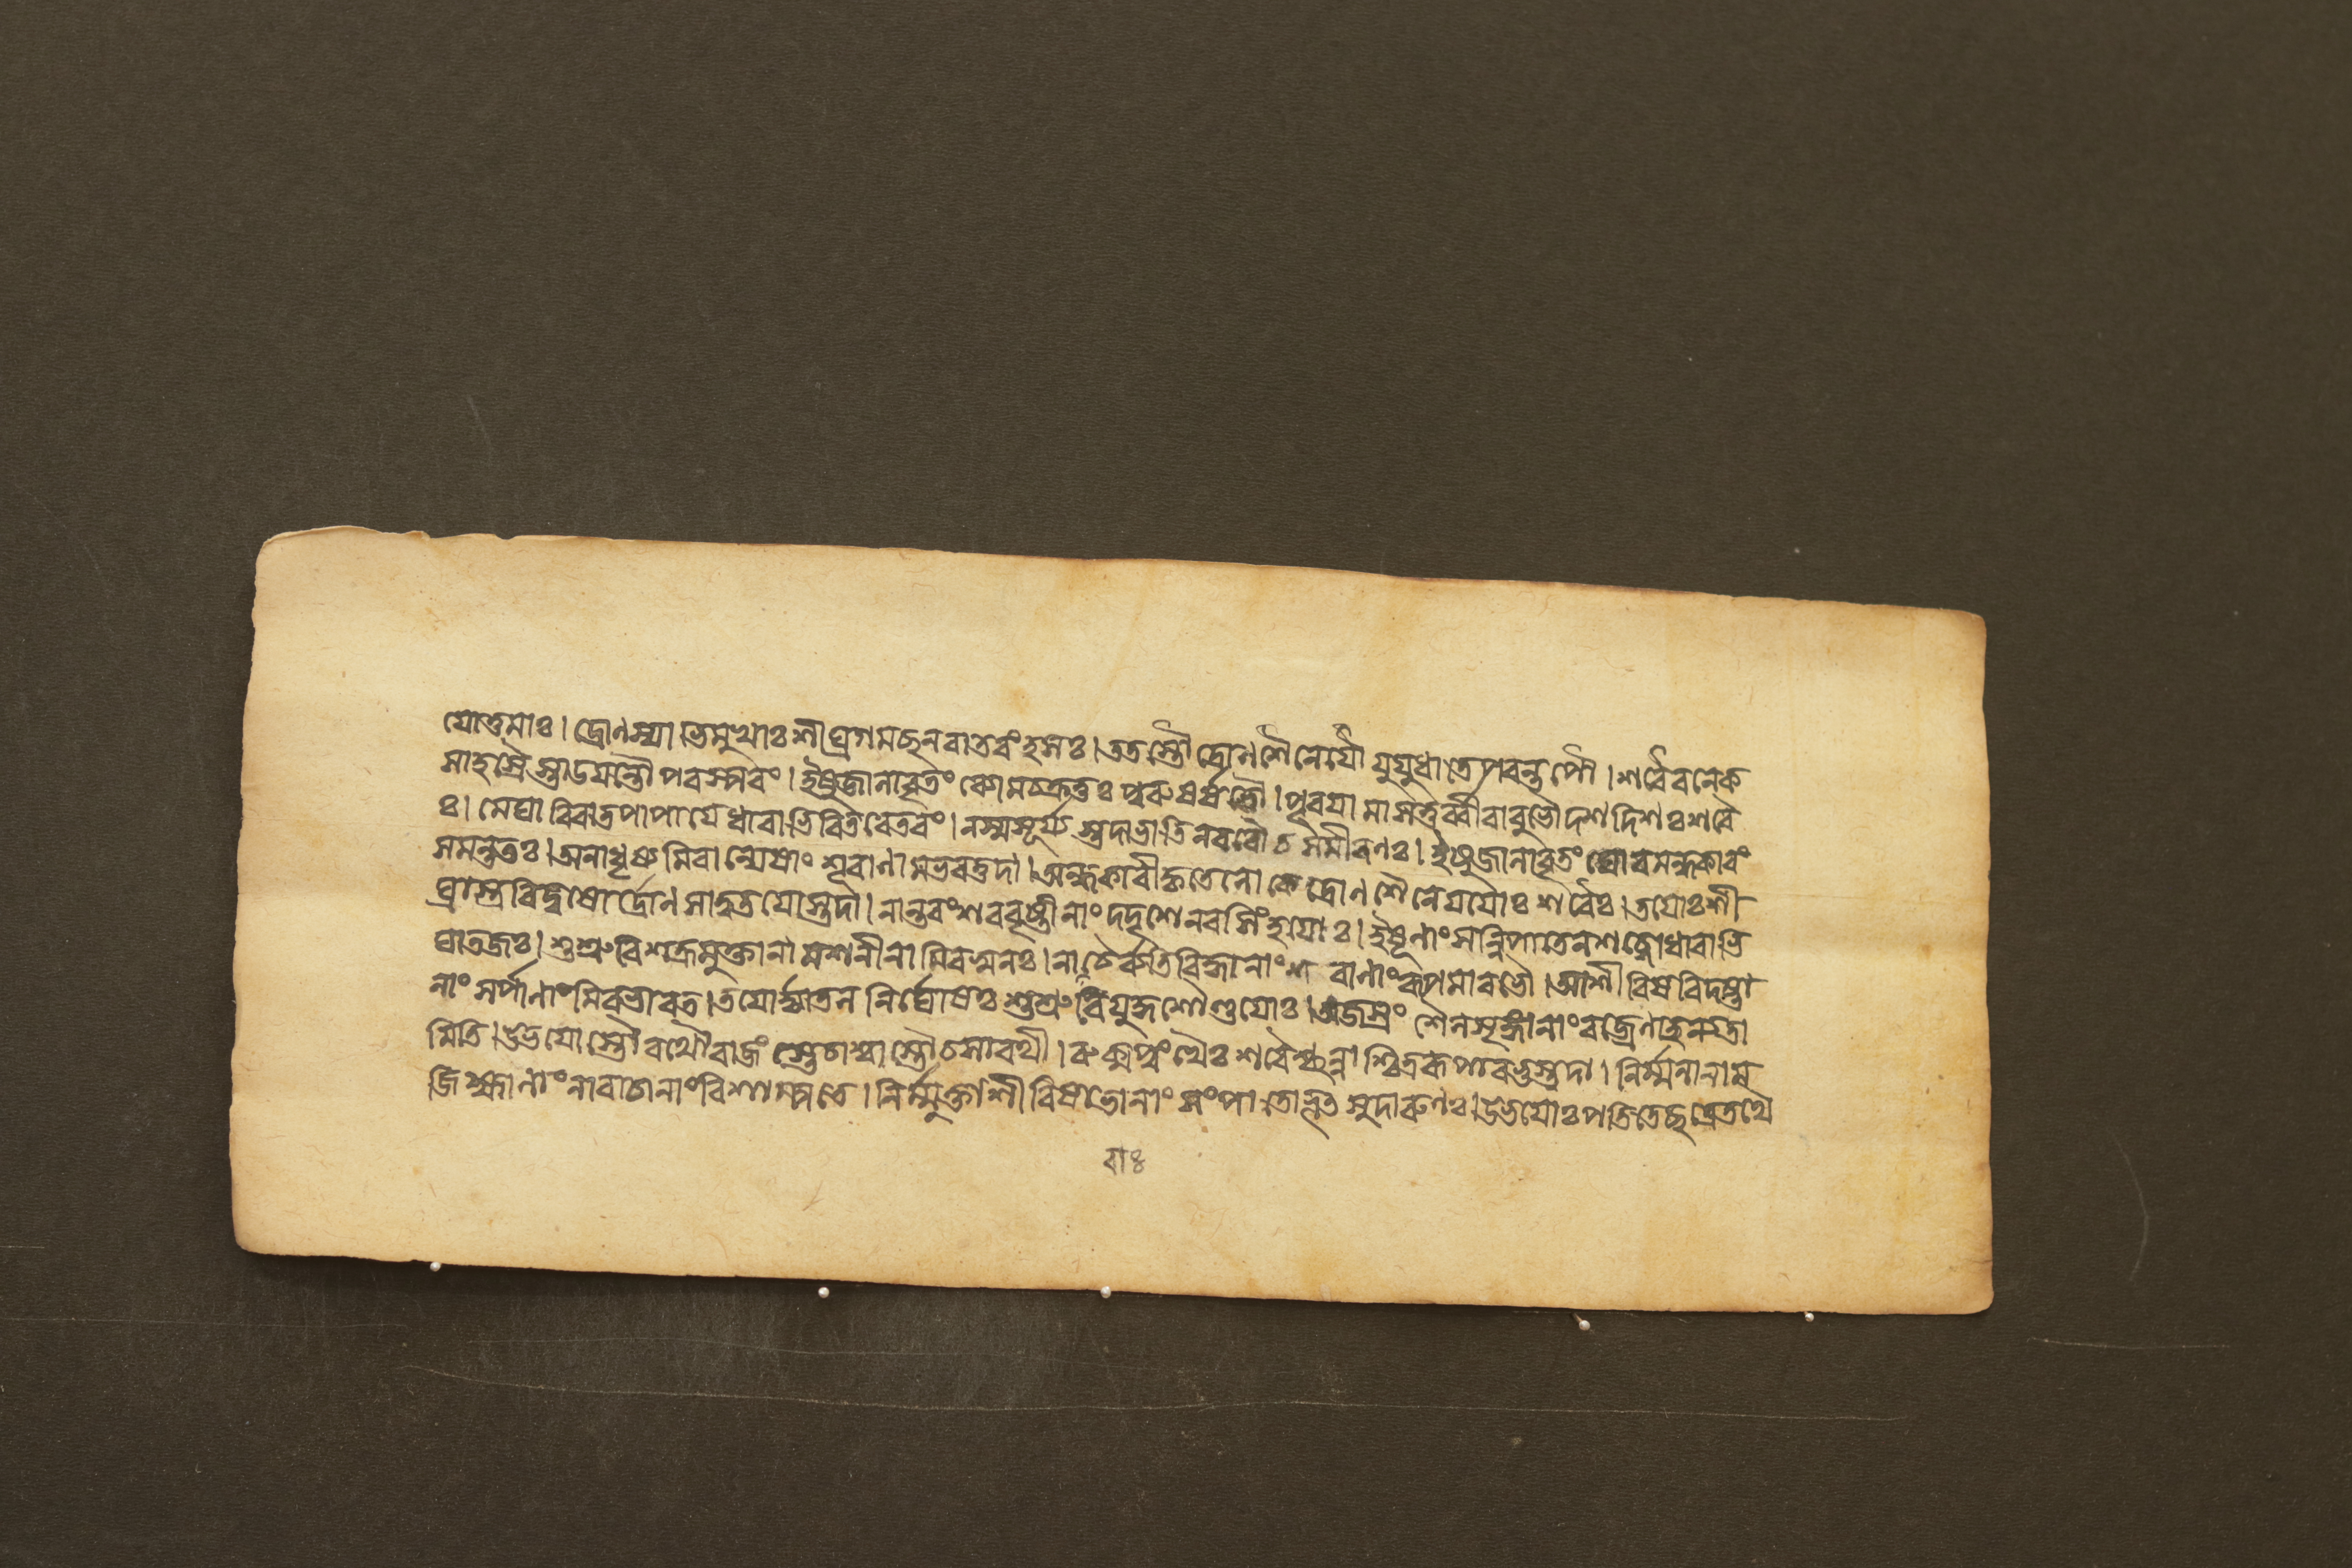 যোত্তমাঃ। দ্রোণস্যাভিমুখাঃ শীঘ্রগমচ্ছনবাতরংহসঃ। ততস্তৌ দ্রোণশৈনেযৌ যুযুধাতে পরন্তপৌ। শরৈরনেক
সাহস্রৈস্তাডযন্তৌ পরস্পরং। ইষুজালাবৃতং ব্যোমচক্রতুঃ পুরুষর্ষভৌ। পূরযামাসতুর্ব্বীরাবুভৌ দশদিশঃ শরৈ
ঃ। মেঘাবিবাতপাপাযে ধারাভিরিতরেতরং। নস্মসূর্য্যস্তদাভাতি নববৌ চ সমীরণঃ। ইষুজালাবৃতং ঘোরমন্ধকারং
সমন্ততঃ। অনাধৃষ্যমিবান্যেষাং শূরাণামভবত্তদা। অন্ধকারীকৃতেলোকে দ্রোণশৈনেযযোঃ শরৈঃ। তযোঃ শী
ঘ্রাস্ত্রবিদুষোর্দ্রোণসাত্বতযোস্তদা। নান্তরং শরবৃষ্টীনাং দদৃশেনরসিংহযোঃ। ইষূণাং সন্নিপাতেনশব্দোধারাভি
ঘাতজঃ। শুশ্রুবেশক্রমুক্তানামশনীনামিবস্বনঃ। নাচৈর্ব্যতিবিদ্ধানাং শরাণাং রূপমাবভৌ। আশীবিষবিদষ্টা
নাং সর্পাণাংমিবভারত। তযোর্জ্যাতলনির্ঘোষঃ শুশ্রুবেযুদ্ধশৌণ্ডযোঃ। অজস্রং শৈলশৃঙ্গানাং বজ্রেণাহন্যতা
মিতি। উভযোস্তৌ রথৌ রাজংস্তেচাশ্বাস্তৌচসারথী। রুক্মপুংখৈঃ শরৈশ্ছন্নাশ্চিত্ররূপাবভুস্তদা। নির্ম্মলানাম
জিহ্মানাং নারাচানাং বিশাম্পতে। নির্ম্মুক্তাশীবিষাভানাং সংপাতোভূৎসুদারুণঃ। উভযোঃ পতিতেছত্রেতথৈ